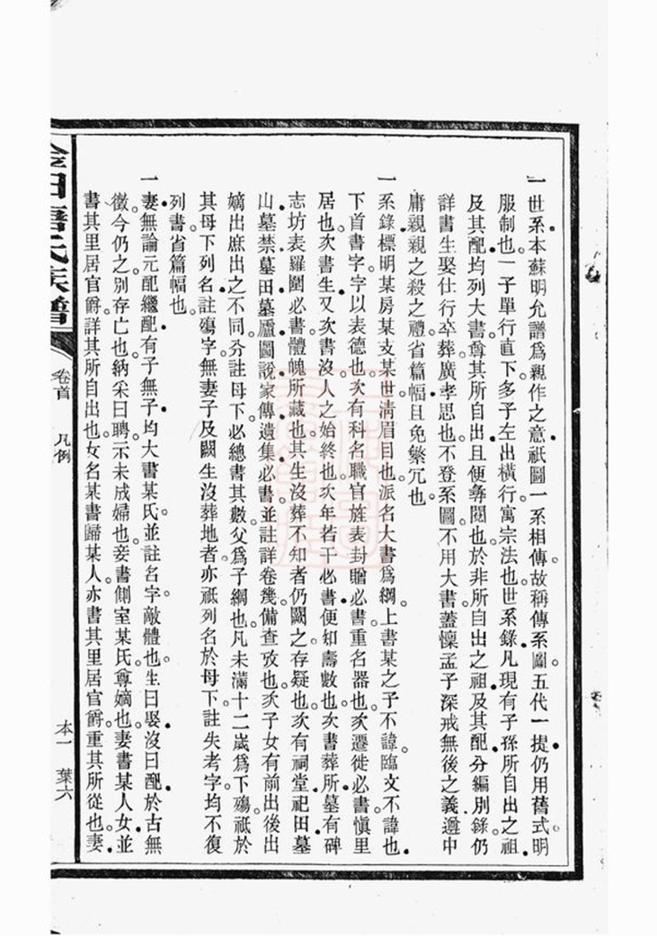 一世系本蘇明允譜爲親作之意祇圖一系相傳故稱傳系圖五代一提仍用舊式明
服制也一子單行直下多子左出橫行寓宗法也世系錄凡現有子孫所自出之祖
及其配均列大書尊其所自出且便彝閱也於非所自出之祖及其配分編別錄仍
詳書生娶仕行卒葬廣孝思也不登系圖不用大書蓋懍孟子深戒無後之義遵中
庸親親之殺之禮省篇幅且免繁冗也
一系錄標明某房某支某世淸眉目也派名大書爲綱上書某之子不諱臨文不諱也
下首書字字以表德也次有科名職官旌表封贈必書重名器也次遷徙必書愼里
居也次書生又次書沒人之始終也次年若干必書便知壽數也次書葬所墓有碑
志坊表羅圍必書體魄所藏也其生沒葬不知者仍闕之存疑也次有祠堂祀田墓
山墓禁墓田墓廬圖說家傳遺集必書並註詳卷幾備查攷也次子女有前出後出
嫡出庶出之不同分註母下必總書其數父爲子綱也凡未滿十二歲爲下殤祇於
其母下列名註殤字無妻子及闕生沒葬地者亦祇列名於母下註失考字均不復
列書省篇幅也
一妻無論元配繼配有子無子均大書某氏並註名字敵體也生曰娶沒曰配於古無
徵今仍之別存亡也納采曰聘示未成婦也妾書側室某氏尊嫡也妻書某人女並
書其里居官爵詳其所自出也女名某書歸某人亦書其里居官爵重其所從也妻
卷首 凡例
本一 葉六